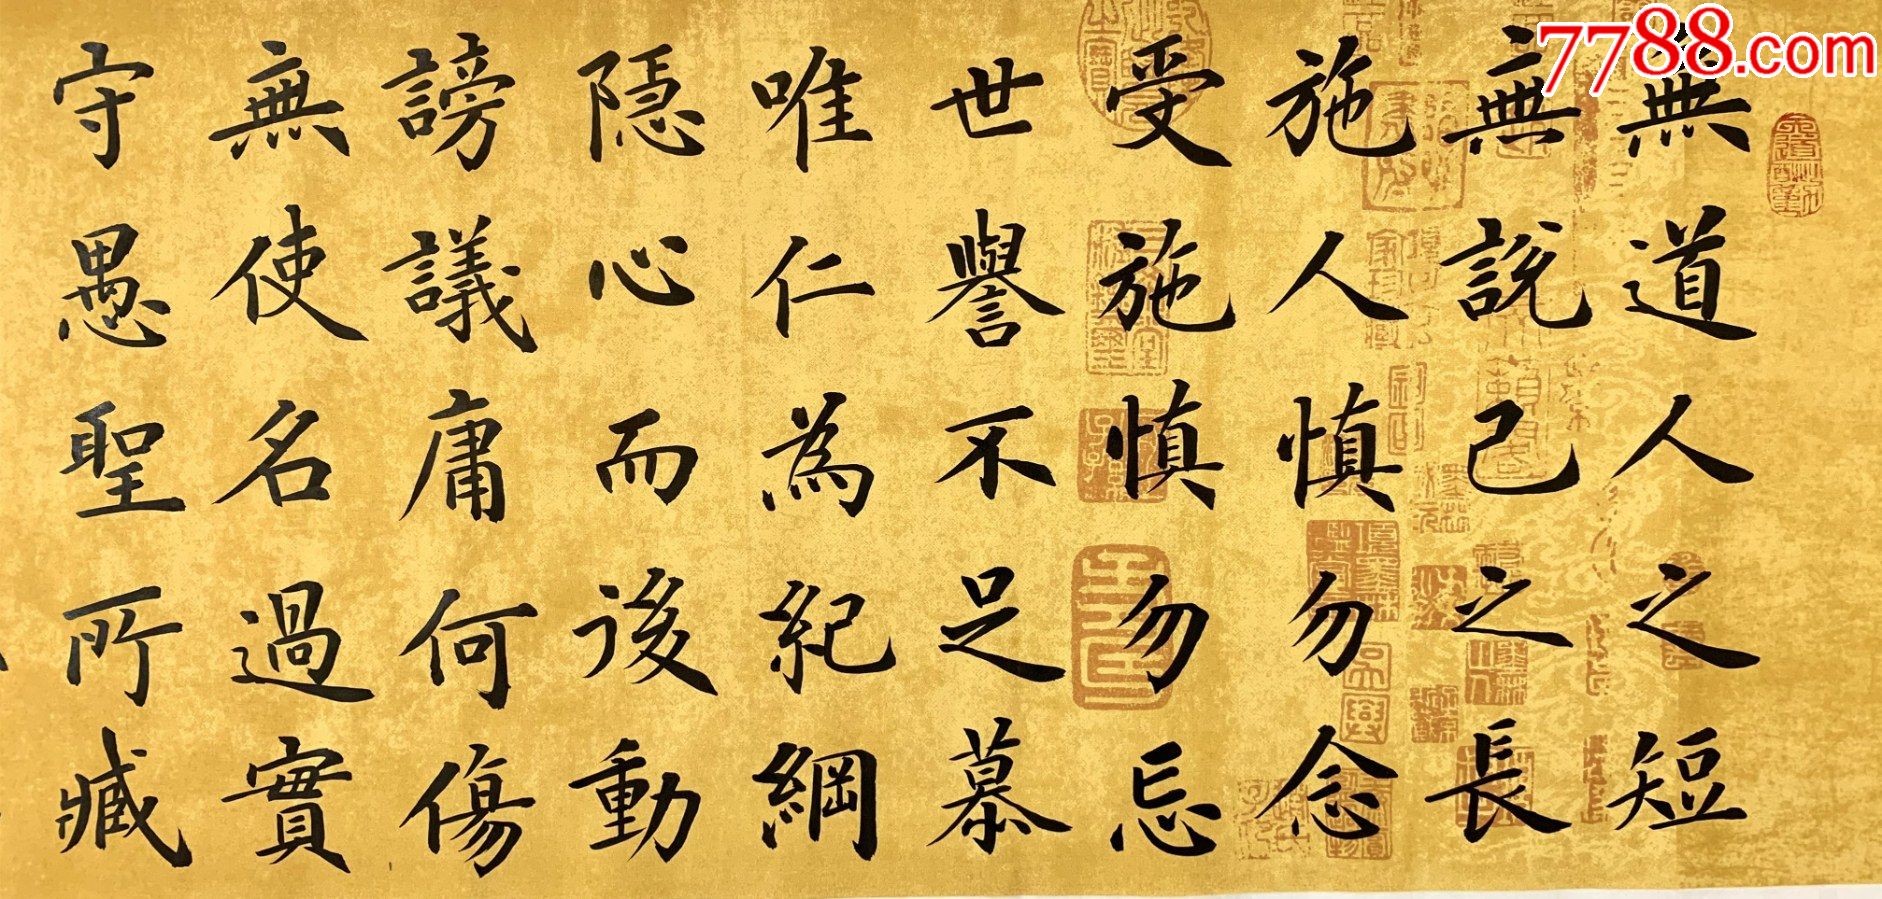 7788.com
無道人之短
無說己之長
施人慎勿念
受施慎勿忘
世譽不足慕
唯仁為紀綱
隱心而後動
謗議庸何傷
無使名過實
守愚聖所臧